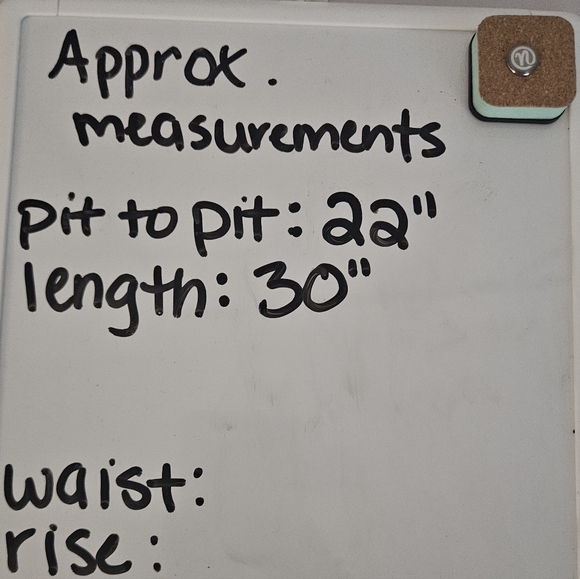 Approx.
measurements
pit to pit: 22"
length: 30"
waist:
rise: